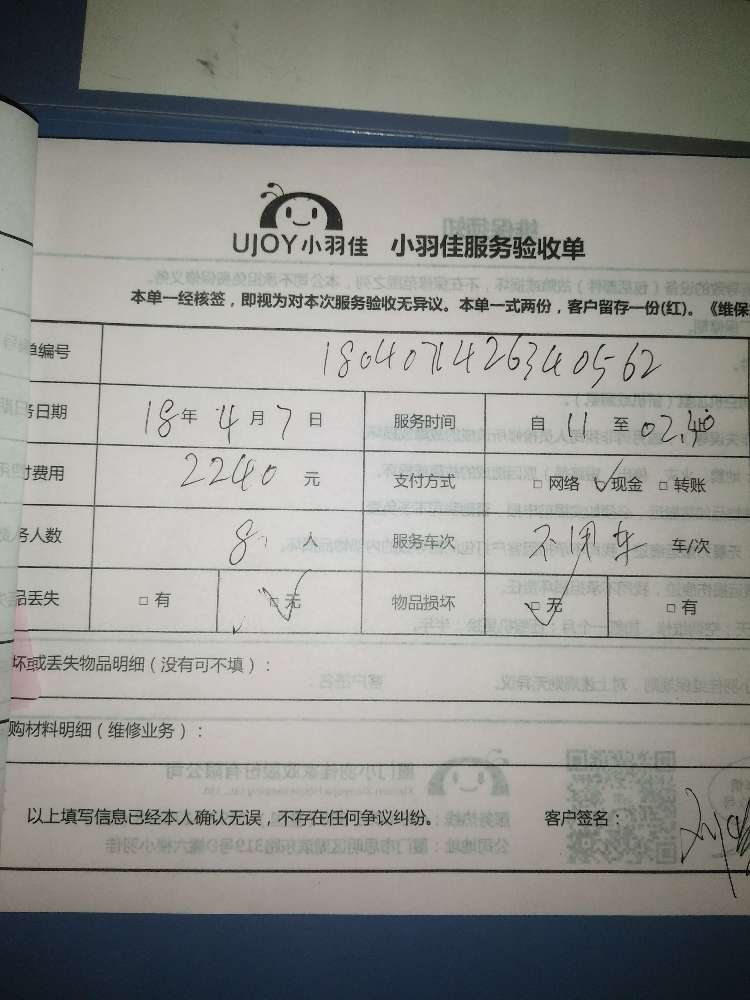 UJOY小羽佳 小羽佳服务验收单
本单一经核签，即视为对本次服务验收无异议。本单一式两份，客户留存一份(红)。《维保
单编号 180407142634 0562
务日期 18 年 4 月 7 日 服务时间 自 11 至 02.40
付费用 2240 元 支付方式 □ 网络 ✓现金 □ 转账
务人数 8 人 服务车次 不用车 车/次
品丢失 □ 有 □ 无 物品损坏 □ 无 □ 有
坏或丢失物品明细（没有可不填）：
购材料明细（维修业务）：
以上填写信息已经本人确认无误，不存在任何争议纠纷。 客户签名：